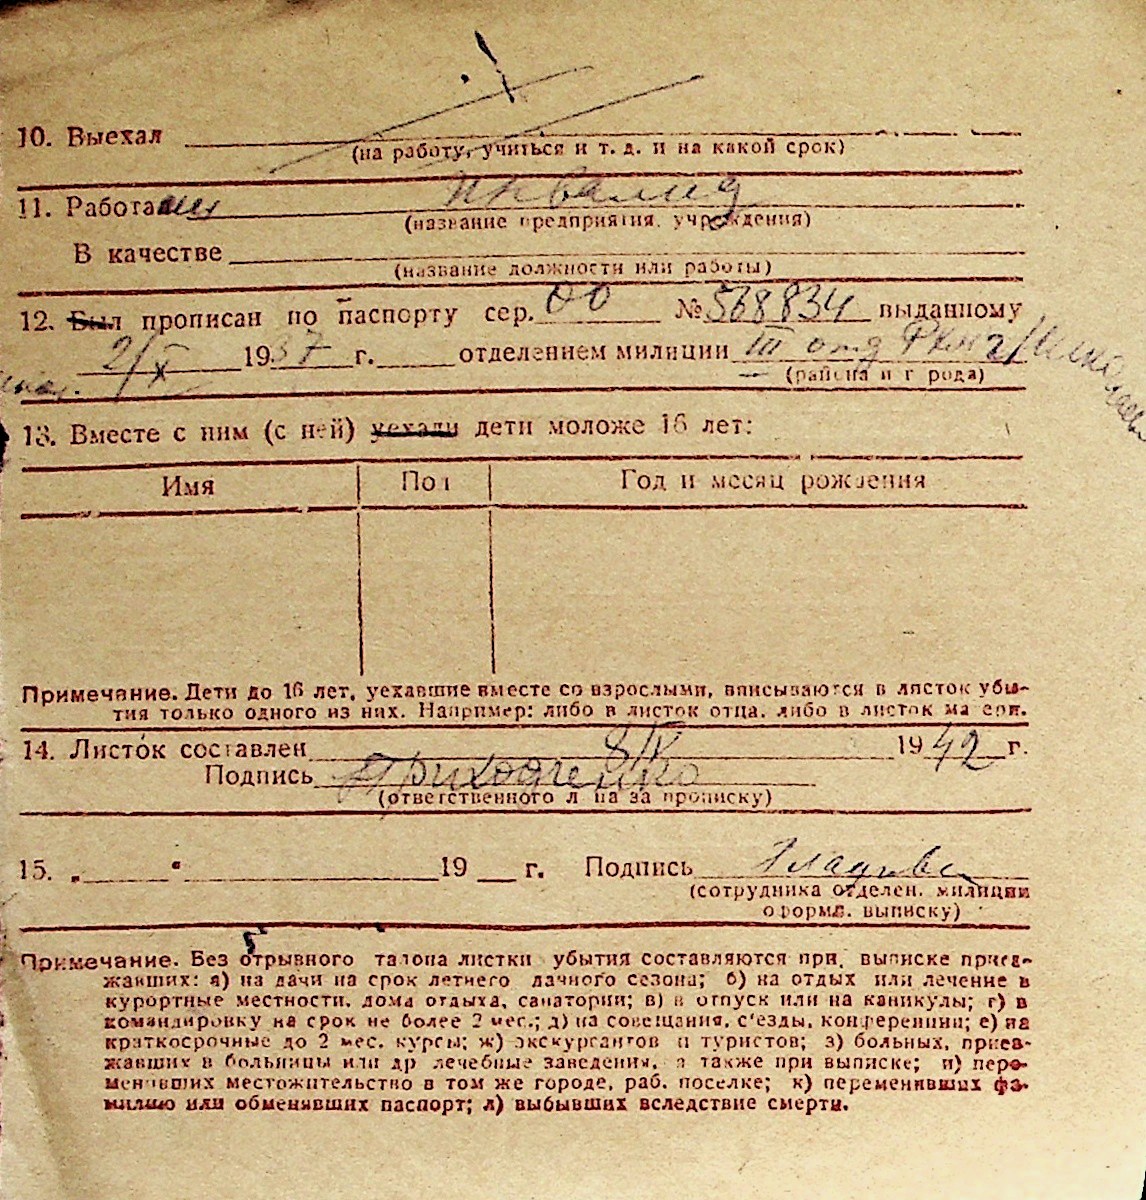 10. Выехал
(на работу, учиться и т. д. и на какой срок)
11. Работа инвалид
(название предприятия, учреждения)
В качестве
(название должности или работы)
12. Был прописан по паспорту сер. 00 № 568834 выданному
2/X 1937 г. отделением милиции III отд
(района и города)
13. Вместе с ним (с ней) уехали дети моложе 16 лет:
Имя Пол Год и месяц рождения
Примечание. Дети до 16 лет, уехавшие вместе со взрослыми, вписываются в листок убы-
тия только одного из них. Например: либо в листок отца, либо в листок матери.
14. Листок составлен 8/X 1942 г.
Подпись Приходченко
(ответственного лица за прописку)
15. „ “ 19 г. Подпись
(сотрудника отделен. милиции
оформл. выписку)
Примечание. Без отрывного талона листки убытия составляются при выписке приез-
жавших: а) на дачи на срок летнего дачного сезона; б) на отдых или лечение в
курортные местности, дома отдыха, санатории; в) в отпуск или на каникулы; г) в
командировку на срок не более 2 мес.; д) на совещания, с'езды, конференции; е) на
краткосрочные до 2 мес. курсы; ж) экскурсантов и туристов; з) больных, приез-
жавших в больницы или др лечебные заведения, а также при выписке; и) пере-
менивших местожительство в том же городе, раб. поселке; к) переменивших фа-
милию или обменявших паспорт; л) выбывших вследствие смерти.